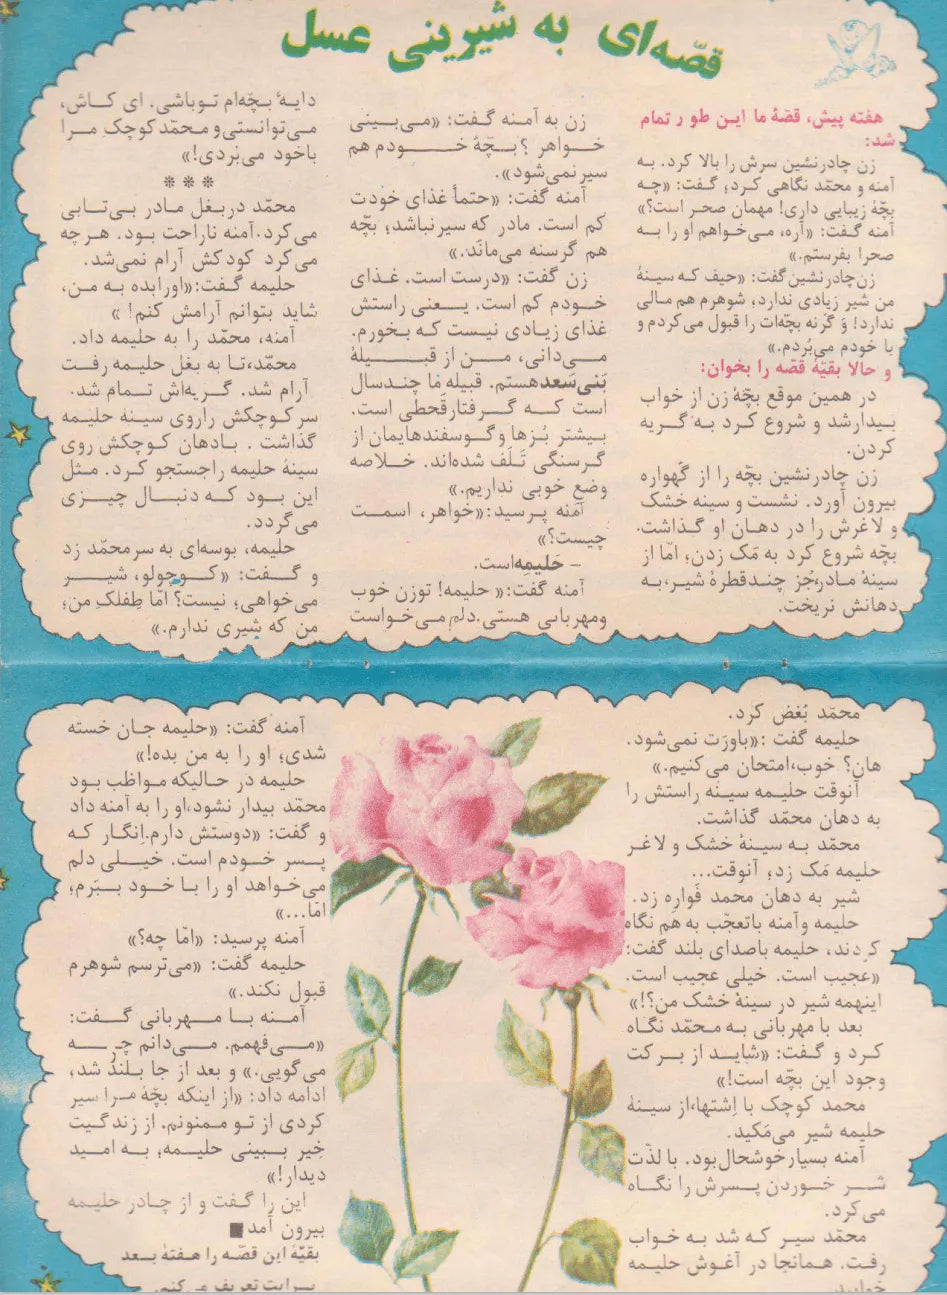 قصّه‌ای به شیرینی عسل
هفته پیش، قصّهٔ ما این طور تمام
شد:
زن چادرنشین سرش را بالا کرد. به
آمنه و محمّد نگاهی کرد؛ گفت: «چه
بچّهٔ زیبایی داری! مهمان صحر است؟»
آمنه گفت: «آره، می‌خواهم او را به
صحرا بفرستم.»
زن‌چادرنشین گفت: «حیف که سینهٔ
من شیر زیادی ندارد؛ شوهرم هم مالی
ندارد! وَ گرنه بچّه‌ات را قبول می‌کردم و
با خودم می‌بُردم.»
و حالا بقیّهٔ قصّه را بخوان:
در همین موقع بچّهٔ زن از خواب
بیدارشد و شروع کرد به گریه
کردن.
زن چادرنشین بچّه را از گهواره
بیرون آورد. نشست و سینه خشک
و لاغرش را در دهان او گذاشت.
بچّه شروع کرد به مَک زدن؛ امّا از
سینهٔ مادر،جُز چندقطرهٔ شیر،به
دهانش نریخت.
زن به آمنه گفت: «می‌بینی
خواهر ؟ بچّهٔ خودم هم
سیرنمی‌شود».
آمنه گفت: «حتماً غذای خودت
کم است. مادر که سیرنباشد؛ بچّه
هم گرسنه می‌مانَد.»
زن گفت: «درست است. غذای
خودم کم است. یعنی راستش
غذای زیادی نیست که بخورم.
می‌دانی، من از قبیلهٔ
بَنی‌سَعدهستم. قبیله مَا چندسال
است که گرفتارقَحطی است.
بیشتر بُزها وگوسفندهایمان از
گرسنگی تَلَف شده‌اند. خلاصه
وضعِ خوبی نداریم.»
آمنه پرسید:«خواهر، اسمت
چیست؟»
- حَلیمِه‌است.
آمنه گفت:« حلیمه! توزن خوب
ومهربانی هستی.دلم می‌خواست
دایهٔ بچّه‌ام توباشی. ای کاش،
می‌توانستی و محمّد کوچکِ مرا
باخود می‌بُردی!»
* * *
محمّد دربغل مادر بی‌تابی
می‌کرد.آمنه ناراحت بود. هرچه
می‌کرد کودکش آرام نمی‌شد.
حلیمه گفت:«اورابده به من،
شاید بتوانم آرامش کنم! »
آمنه، محمّد را به حلیمه داد.
محمّد،تا به بغل حلیمه رفت
آرام شد. گریه‌اش تمام شد.
سرکوچکش راروی سینهٔ حلیمه
گذاشت . بادهان کوچکش روی
سینهٔ حلیمه راجستجو کرد. مثل
این بود که دنبال چیزی
می‌گردد.
حلیمه، بوسه‌ای به سرمحمّد زد
و گفت: «کوچولو، شیر
می‌خواهی؛ نیست؟ امّا طِفلکِ من؛
من که شیری ندارم.»
محمّد بُغض کرد.
حلیمه گفت :«باورَت نمی‌شود.
هان؟ خوب،امتحان می‌کنیم.»
آنوقت حلیمه سینه راستش را
به دهان محمّد گذاشت.
محمّد به سینهٔ خشک و لاغر
حلیمه مَک زد؛ آنوقت...
شیر به دهان محمد فَواره زد.
حلیمه وآمنه باتعجّب به هم نگاه
کردند، حلیمه باصدای بلند گفت:
«عجیب است. خیلی عجیب است.
اینهمه شیر در سینهٔ خشک من؟!»
بعد با مهربانی به محمّد نگاه
کرد و گفت: «شاید از برکت
وجود این بچّه است!»
محمد کوچک با اِشتها،از سینهٔ
حلیمه شیر می‌مَکید.
آمنه بسیارخوشحال‌بود. با لذّت
شیر خوردن پسرش را نگاه
می‌کرد.
محمّد سیر که شد به خواب
رفت. همانجا در آغوش حلیمه
خوابید.
آمنه گفت: «حلیمه جان خسته
شدی؛ او را به من بده!»
حلیمه در حالیکه مواظب بود
محمّد بیدار نشود،او را به آمنه داد
و گفت: «دوستش دارم.اِنگار که
پسر خودم است. خیلی دلم
می‌خواهد او را با خود ببَرم؛
امّا...»
آمنه پرسید: «امّا چه؟»
حلیمه گفت: «می‌ترسم شوهرم
قبول نکند.»
آمنه با مهربانی گفت:
«می‌فهمم. می‌دانم چه
می‌گویی.» و بعد از جا بلند شد؛
ادامه داد: «از اینکه بچّهٔ مرا سیر
کردی از تو ممنونم. از زندگیت
خِیر ببینی حلیمه؛ به امید
دیدار!»
این را گفت و از چادر حلیمه
بیرون آمد■
بقیّهٔ این قصّه را هفتهٔ بعد
برایت تعریف می‌کنم.